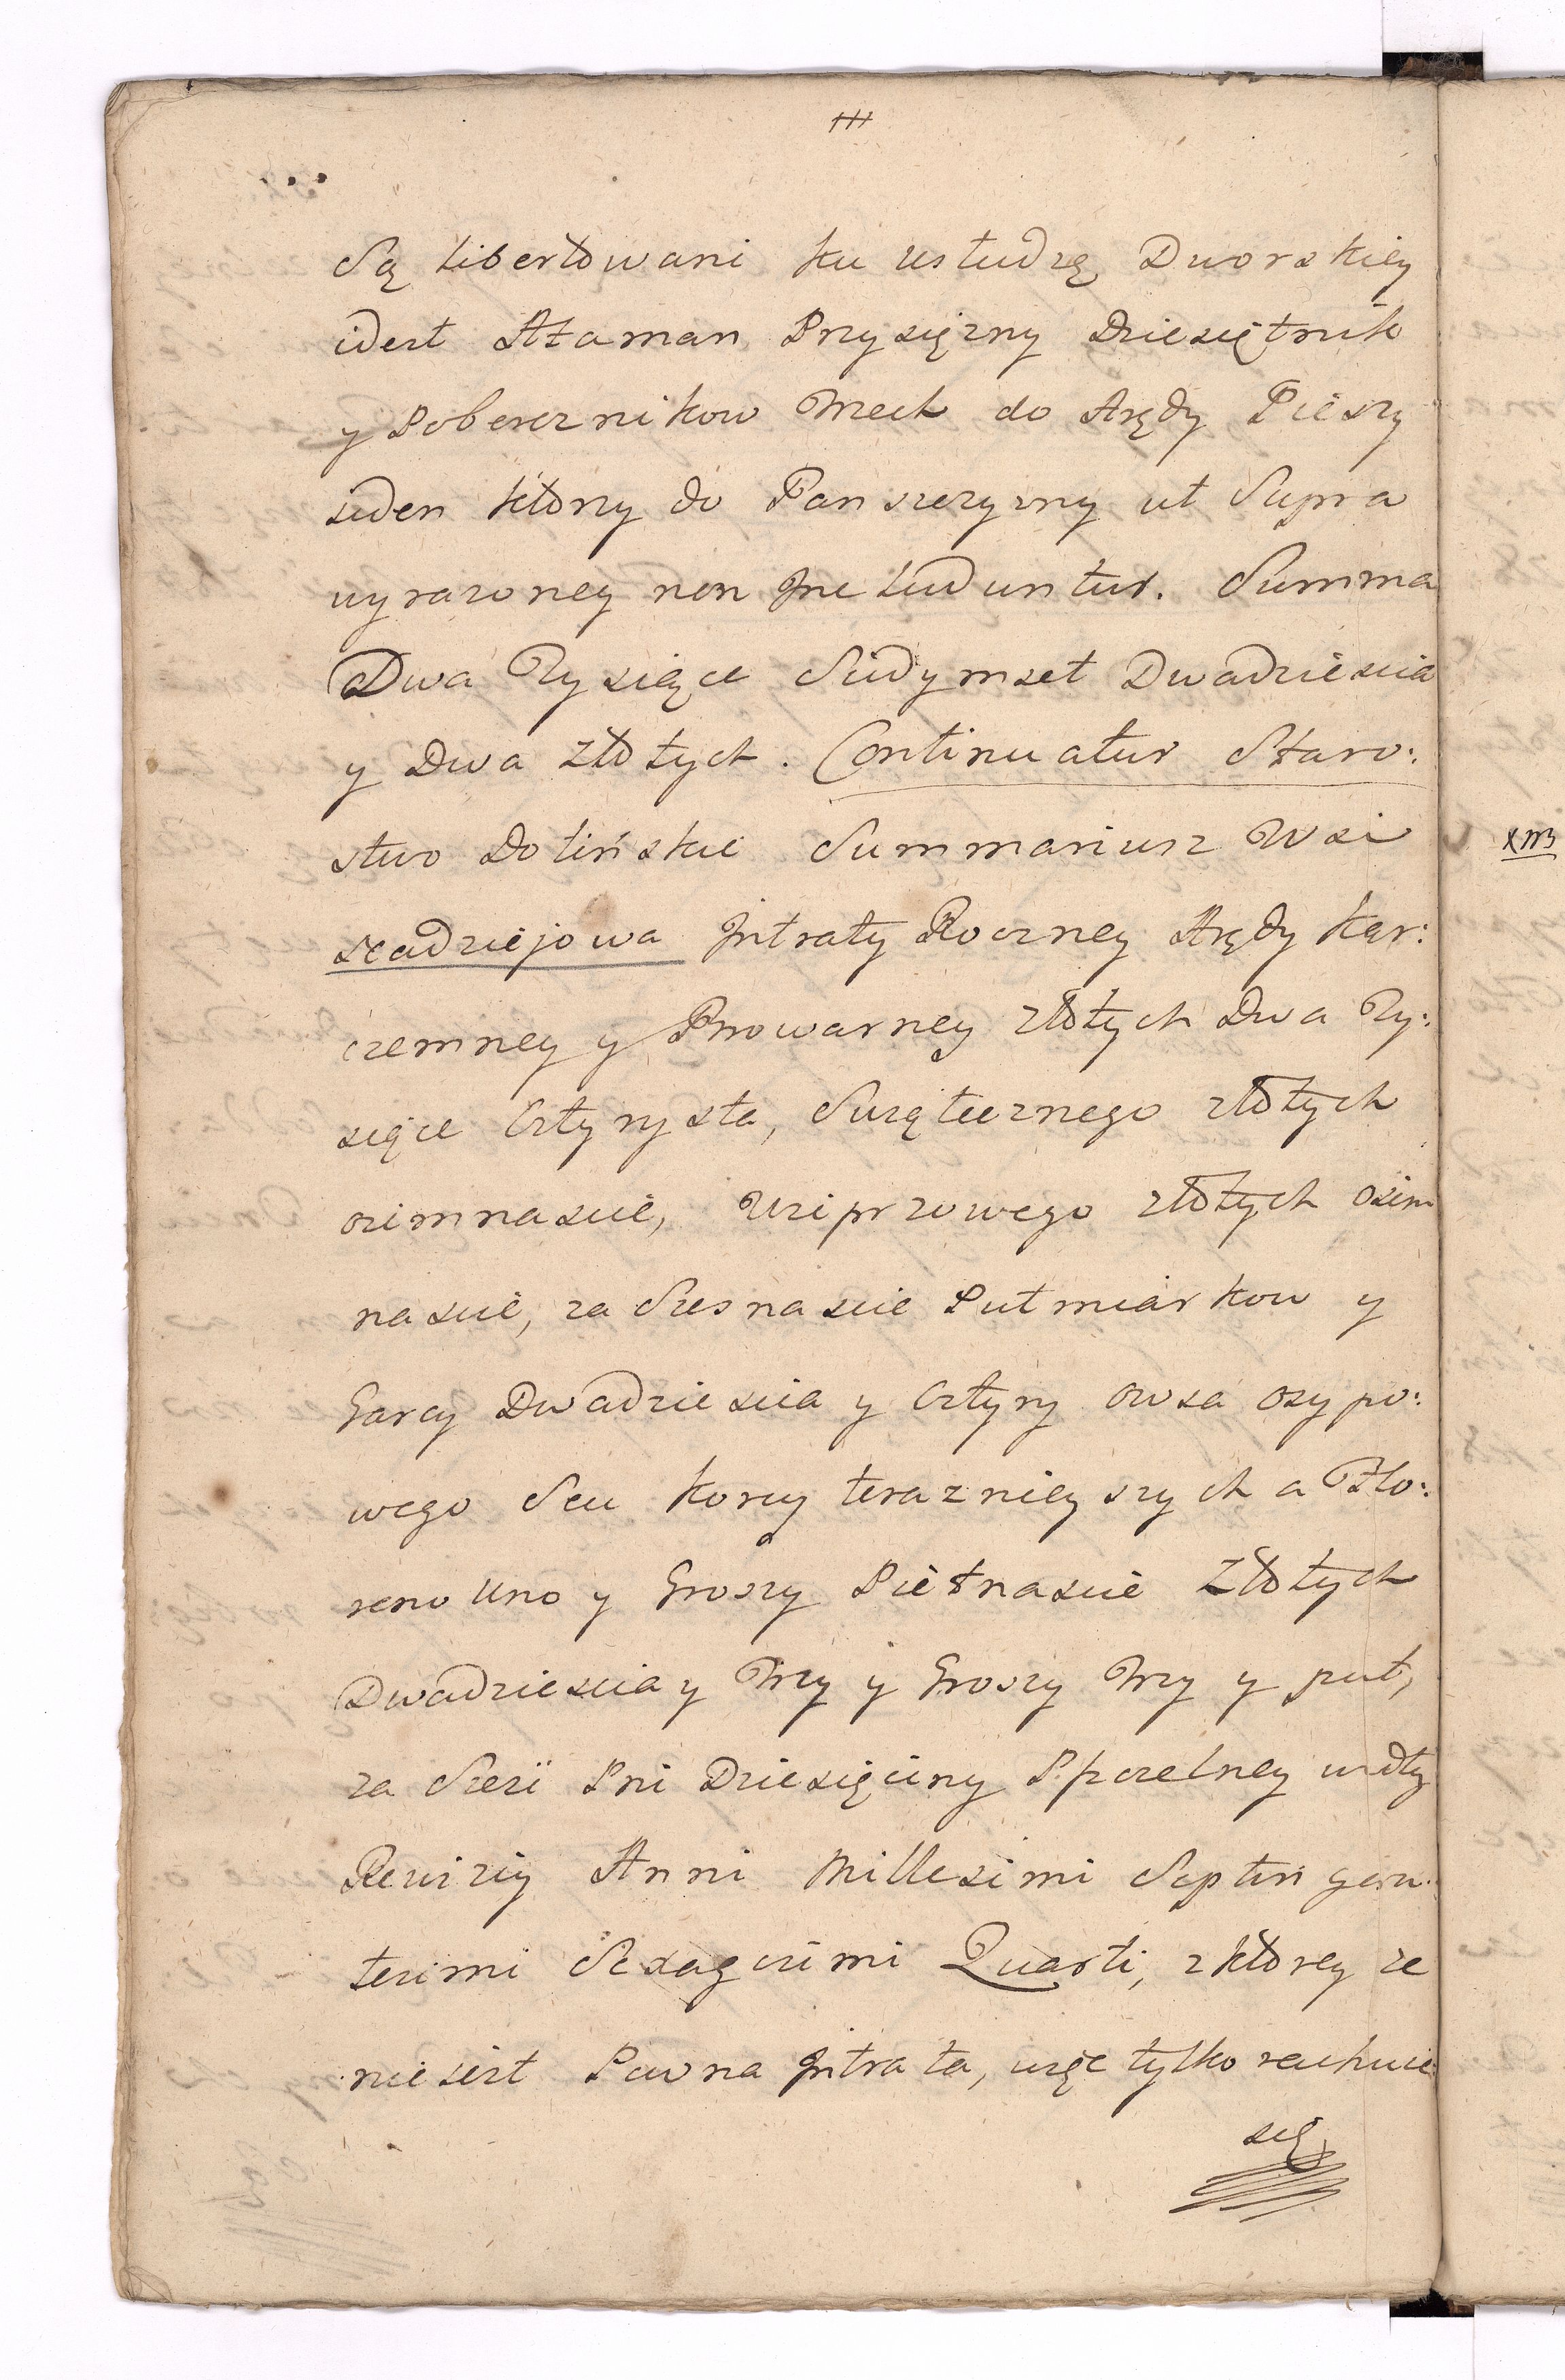 Są Libertowani ku usłudzę Dworskiey
idest Ataman Przysięzny Dziesiętnik
y Pobereznikow Trzech do Arędy Pieszy
ieden ktory do Panszczyzny ut Supra
wyrazoney non Jncluduntur. Summa
Dwa Tysięce Siedymset Dwadziescia
y Dwa złotych. Continuatur Staro:
stwo Dolińskie Summariusz Wsi
Stadziejowa Jntraty Roczney Arędy Kar:
czemney y Prowarney złotych Dwa Ty:
sięce Cztyrysta, Swiątecznego złotych
osimnascie, Wieprzowego złotych osim
nascie, za Szesnascie Pułmiarkow y
Garcy Dwadziescia y Cztyry Owsa Osypo:
wego Seu Korcy teraznieyszych a Flo:
reno Uno y Groszy Pietnascie Złotych
Dwadziescia y Trzy y Groszy Trzy y puł,
za Szesc Pni Dziesięciny Pszczelney wedły
Rewiziy Anni Millesimi Septingen:
tesimi Sexagesimi Quarti, z ktorey ze
nie iest Pewna Jntrata, więc tylko rachuie
się